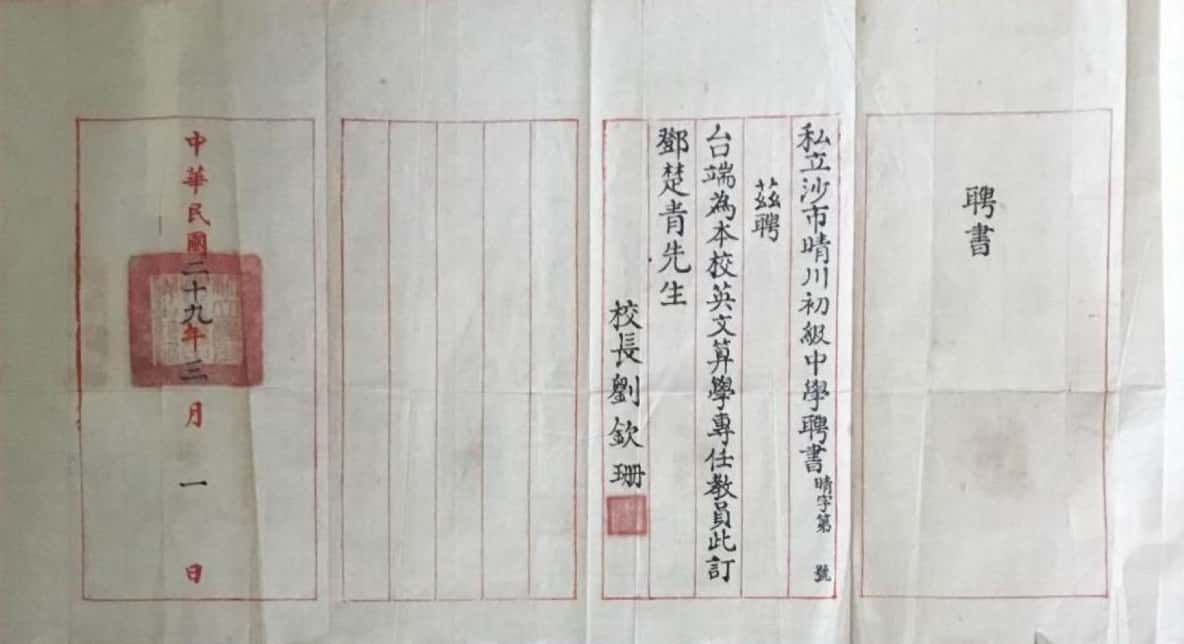 聘書
私立沙市晴川初級中學聘書 晴字第 號
茲聘
台端為本校英文算學專任教員此訂
鄧楚青先生
校長劉欽珊
中華民國二十九年三月一日